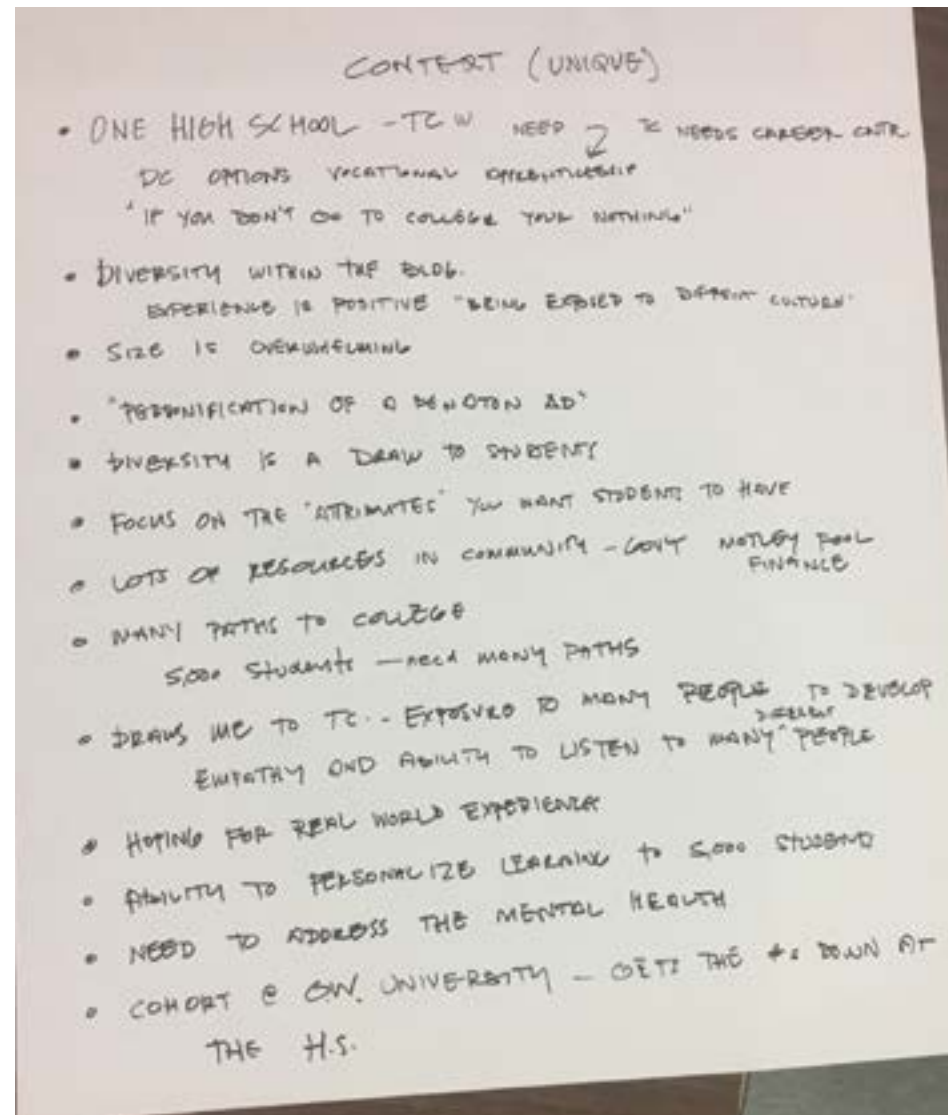 CONTEXT (UNIQUE)
• ONE HIGH SCHOOL - TCW NEED TC NEEDS CAREER CNTR
DC OPTIONS VOCATIONAL APPRENTICESHIP
"IF YOU DON'T GO TO COLLEGE YOUR NOTHING"
• DIVERSITY WITHIN THE BLDG.
EXPERIENCE IS POSITIVE "BEING EXPOSED TO DIFFERENT CULTURES"
• SIZE IS OVERWHELMING
• "PERSONIFICATION OF A BENETTON AD"
• DIVERSITY IS A DRAW TO STUDENTS
• FOCUS ON THE "ATTRIBUTES" YOU WANT STUDENTS TO HAVE
• LOTS OF RESOURCES IN COMMUNITY - GOVT MOTLEY FOOL
FINANCE
• MANY PATHS TO COLLEGE
5,000 Students — need MANY PATHS
• DRAWS ME TO TC - EXPOSURE TO MANY PEOPLE TO DEVELOP
EMPATHY AND ABILITY TO LISTEN TO MANY DIFFERENT PEOPLE
• HOPING FOR REAL WORLD EXPERIENCE
• ABILITY TO PERSONALIZE LEARNING TO 5,000 STUDENTS
• NEED TO ADDRESS THE MENTAL HEALTH
• COHORT @ GW. UNIVERSITY - GETS THE #s DOWN AT
THE H.S.